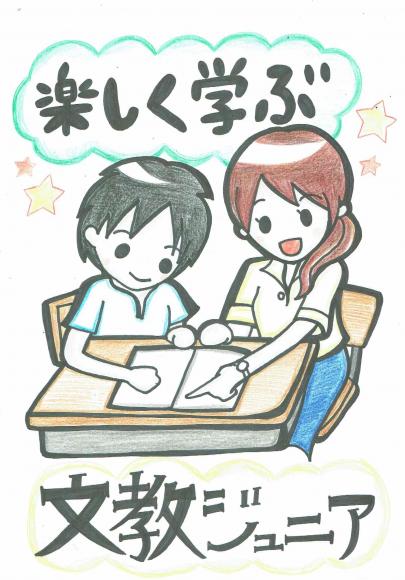 楽しく学ぶ
文教ジュニア